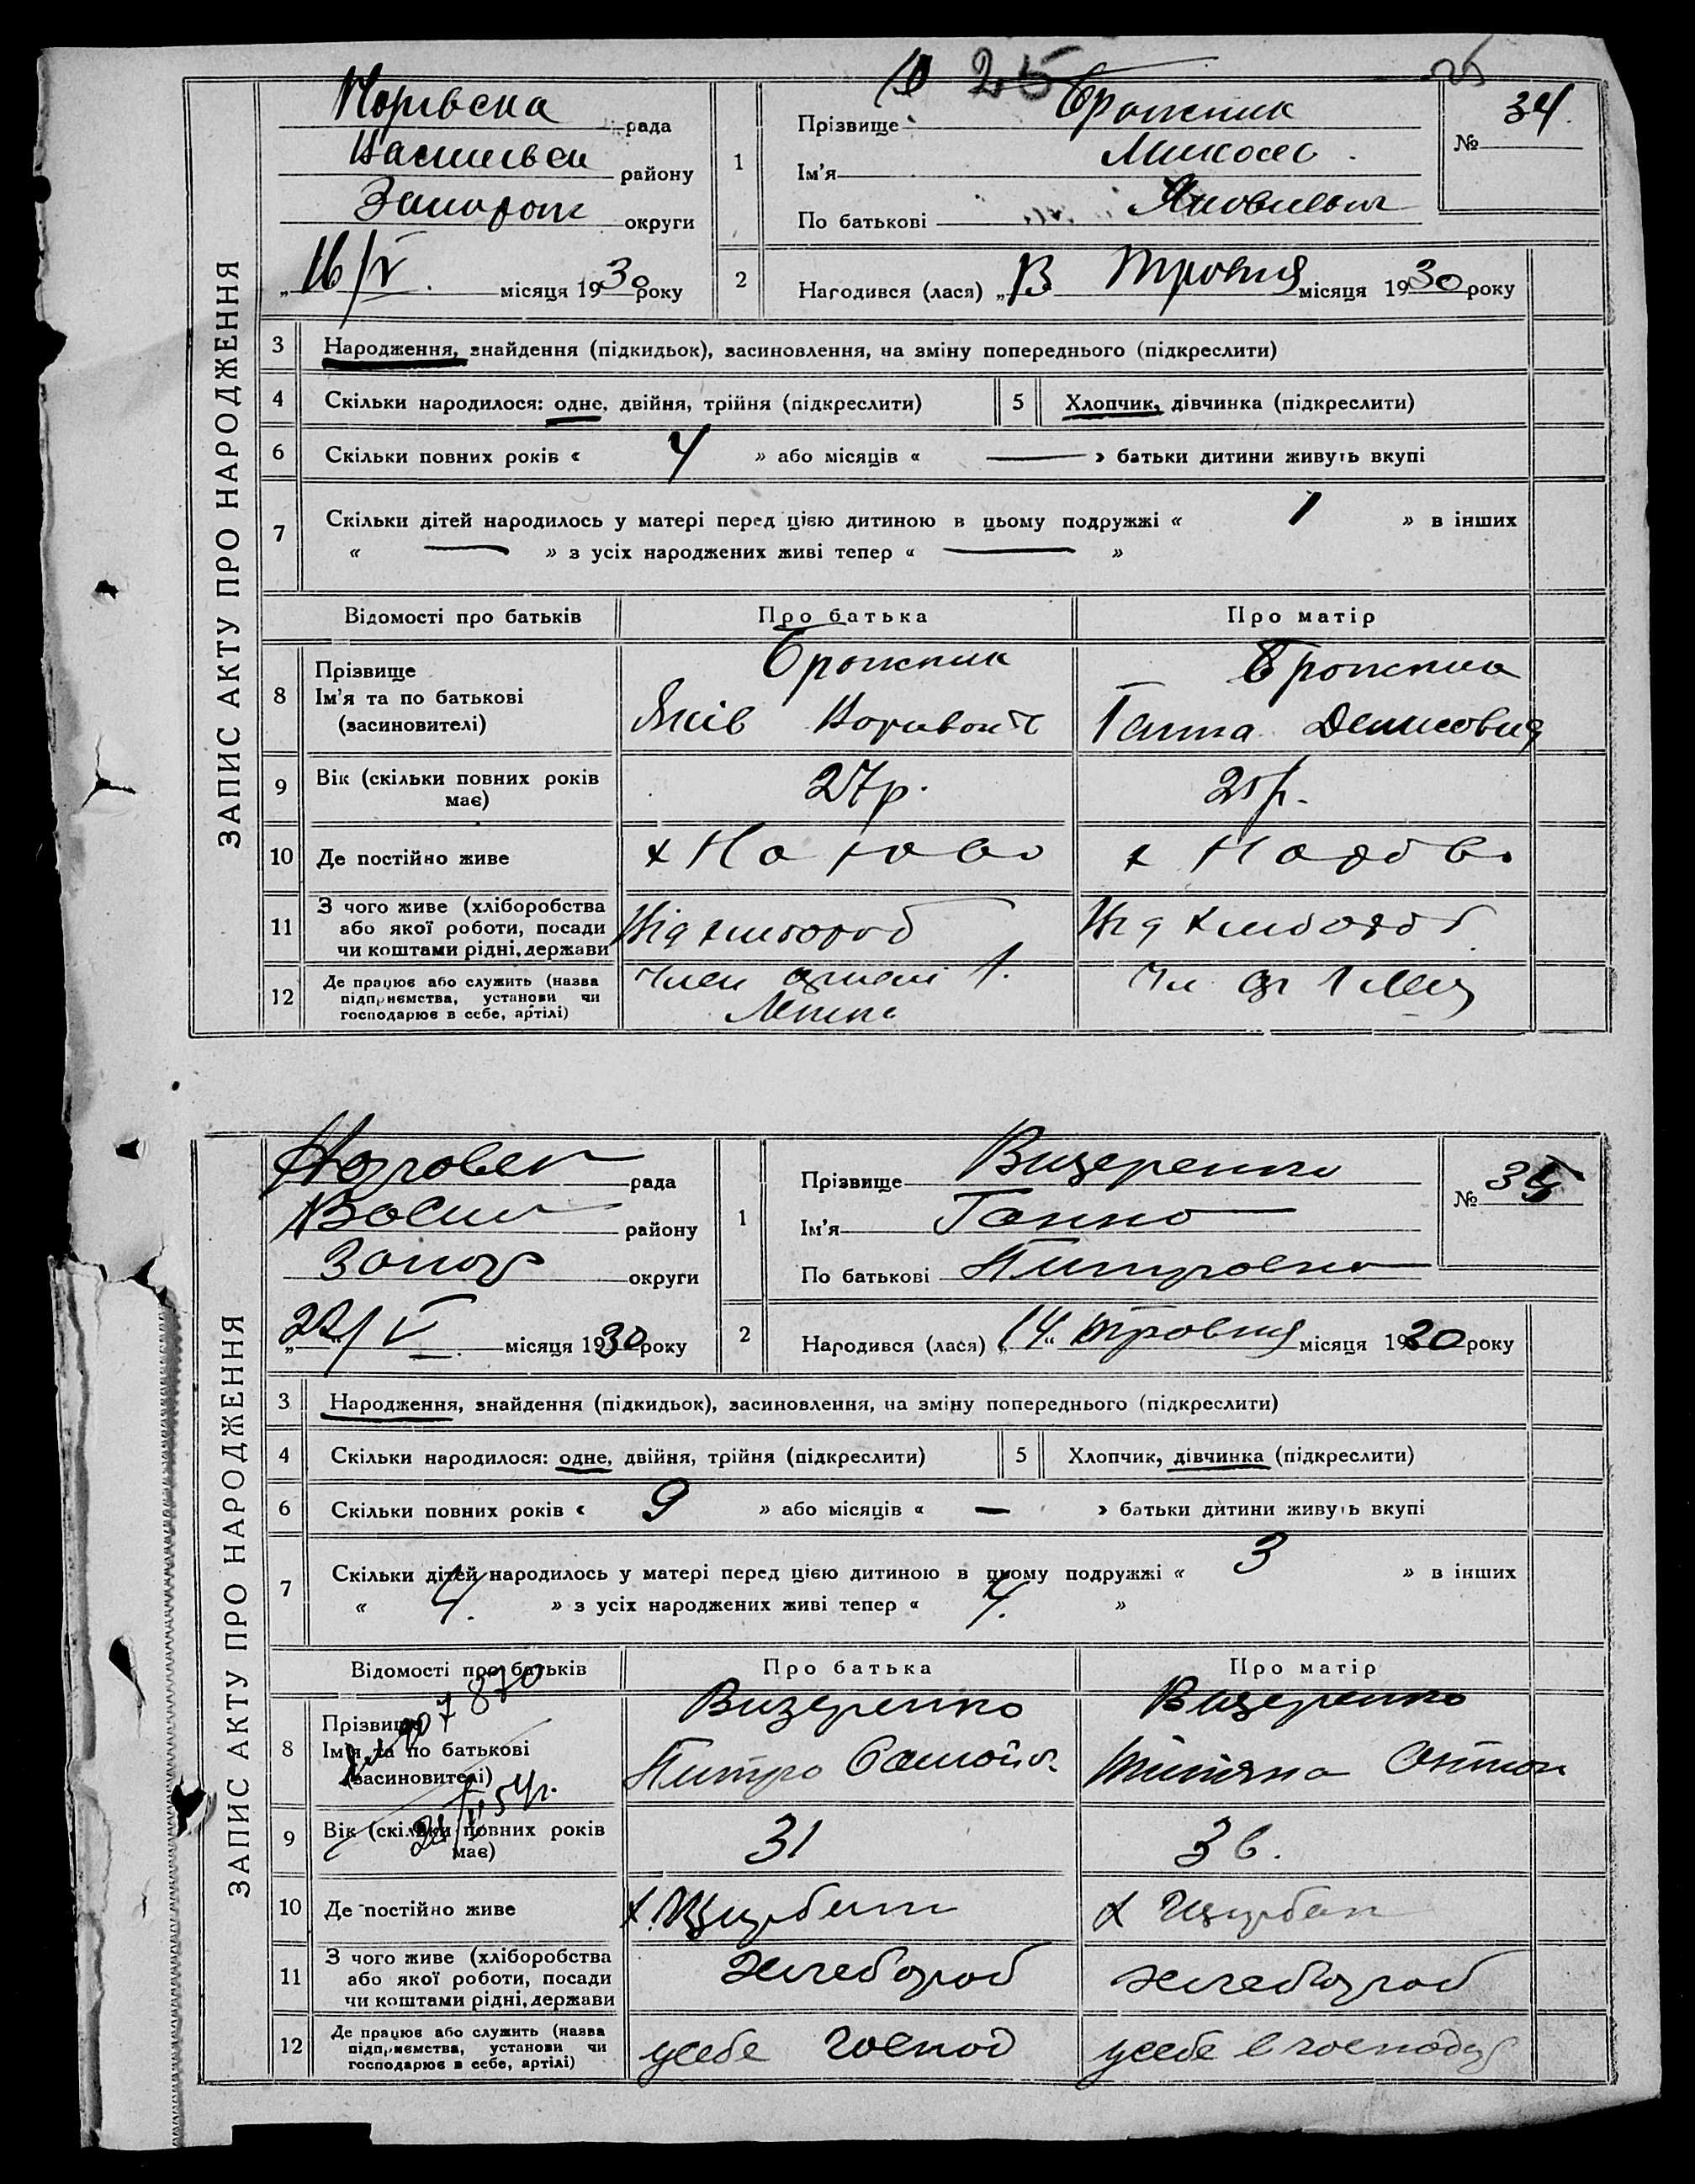 25
ЗАПИС АКТУ ПРО НАРОДЖЕННЯ
рада
району
Запорож округи
„16/V. місяця 1930 року
1
Прізвище
Ім'я Микола
По батькові Якович
№ 34.
2
Народився (лася) „13 травня місяця 1930 року
3 Народження, знайдення (підкидьок), засиновлення, на зміну попереднього (підкреслити)
4 Скільки народилося: одне, двійня, трійня (підкреслити)
5 Хлопчик, дівчинка (підкреслити)
6 Скільки повних років « 4 » або місяців « — » батьки дитини живуть вкупі
7 Скільки дітей народилось у матері перед цією дитиною в цьому подружжі « 1 » в інших
« — » з усіх народжених живі тепер « — »
Відомості про батьків Про батька Про матір
8 Прізвище
Ім'я та по батькові Яків Ганна Денисовна
(засиновителі)
9 Вік (скільки повних років має) 27р. 25р.
10 Де постійно живе х х
11 З чого живе (хліборобства або якої роботи, посади чи коштами рідні, держави Від хлібороб Від хлібороб
12 Де працює або служить (назва підприємства, установи чи господарює в себе, артілі) Член артілі
ЗАПИС АКТУ ПРО НАРОДЖЕННЯ
рада
Васил району
Запор округи
„22/V місяця 1930 року
1
Прізвище Визеренко
Ім'я Ганна
По батькові Питровна
№ 35
2
Народився (лася) „14" травня місяця 1930 року
3 Народження, знайдення (підкидьок), засиновлення, на зміну попереднього (підкреслити)
4 Скільки народилося: одне, двійня, трійня (підкреслити)
5 Хлопчик, дівчинка (підкреслити)
6 Скільки повних років « 9 » або місяців « — » батьки дитини живуть вкупі
7 Скільки дітей народилось у матері перед цією дитиною в цьому подружжі « 3 » в інших
« 4. » з усіх народжених живі тепер « 4. »
Відомості про батьків Про батька Про матір
8 Прізвище Визеренко Визеренко
Ім'я та по батькові Питро Самойл Антон
(засиновителі)
9 Вік (скільки повних років має) 31 36.
10 Де постійно живе х. х
11 З чого живе (хліборобства або якої роботи, посади чи коштами рідні, держави хлебороб хлебороб
12 Де працює або служить (назва підприємства, установи чи господарює в себе, артілі) у себе господ у себе в господар